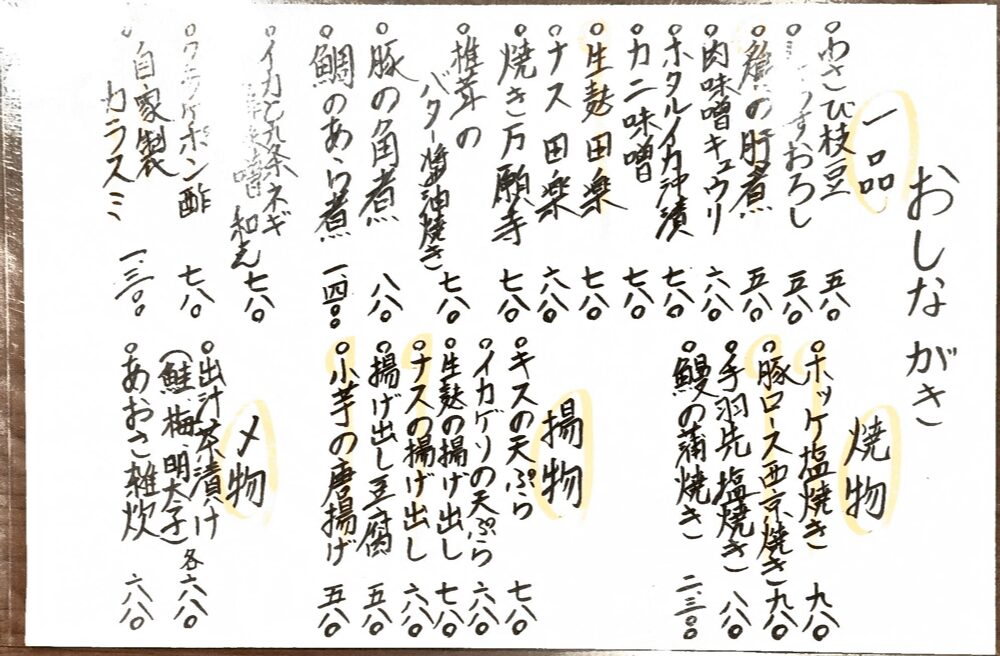 おしながき
一品
わさび枝豆 五八〇
すおろし 五八〇
の肝煮 五八〇
肉味噌キュウリ 六八〇
ホタルイカ沖漬 七八〇
カニ味噌 七八〇
生麩田楽 七八〇
ナス田楽 六八〇
焼き万願寺 七八〇
椎茸の
バター醤油焼き 七八〇
豚の角煮 八八〇
鯛のあら煮 一、四〇〇
イカと九条ネギ
味噌和え 七八〇
クラゲポン酢 七八〇
自家製
カラスミ 一、三〇〇
焼物
ホッケ塩焼き 九八〇
豚ロース西京焼き 九八〇
手羽先塩焼き 八八〇
鰻の蒲焼き 二、三〇〇
揚物
キスの天ぷら 七八〇
イカゲソの天ぷら 六八〇
生麩の揚げ出し 七八〇
ナスの揚げ出し 六八〇
揚げ出し豆腐 五八〇
小芋の唐揚げ 五八〇
〆物
出汁茶漬け
(鮭、梅、明太子) 各六八〇
あおさ雑炊 六八〇